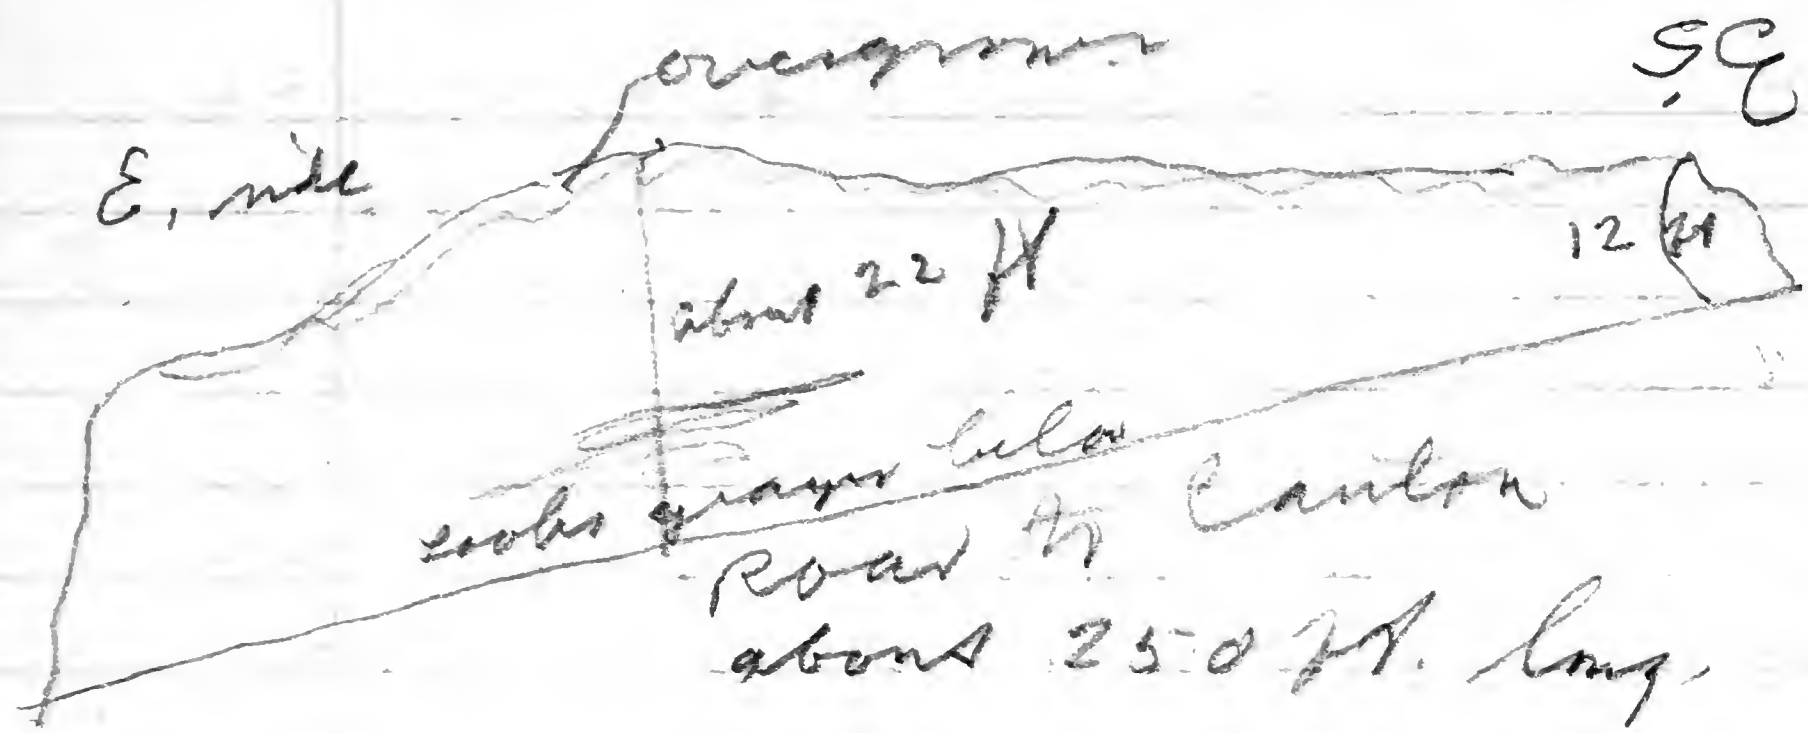 overgrown
SE
E. side
12 ft
about 22 ft
looks grayer below
Road to Canton
about 250 ft. long.